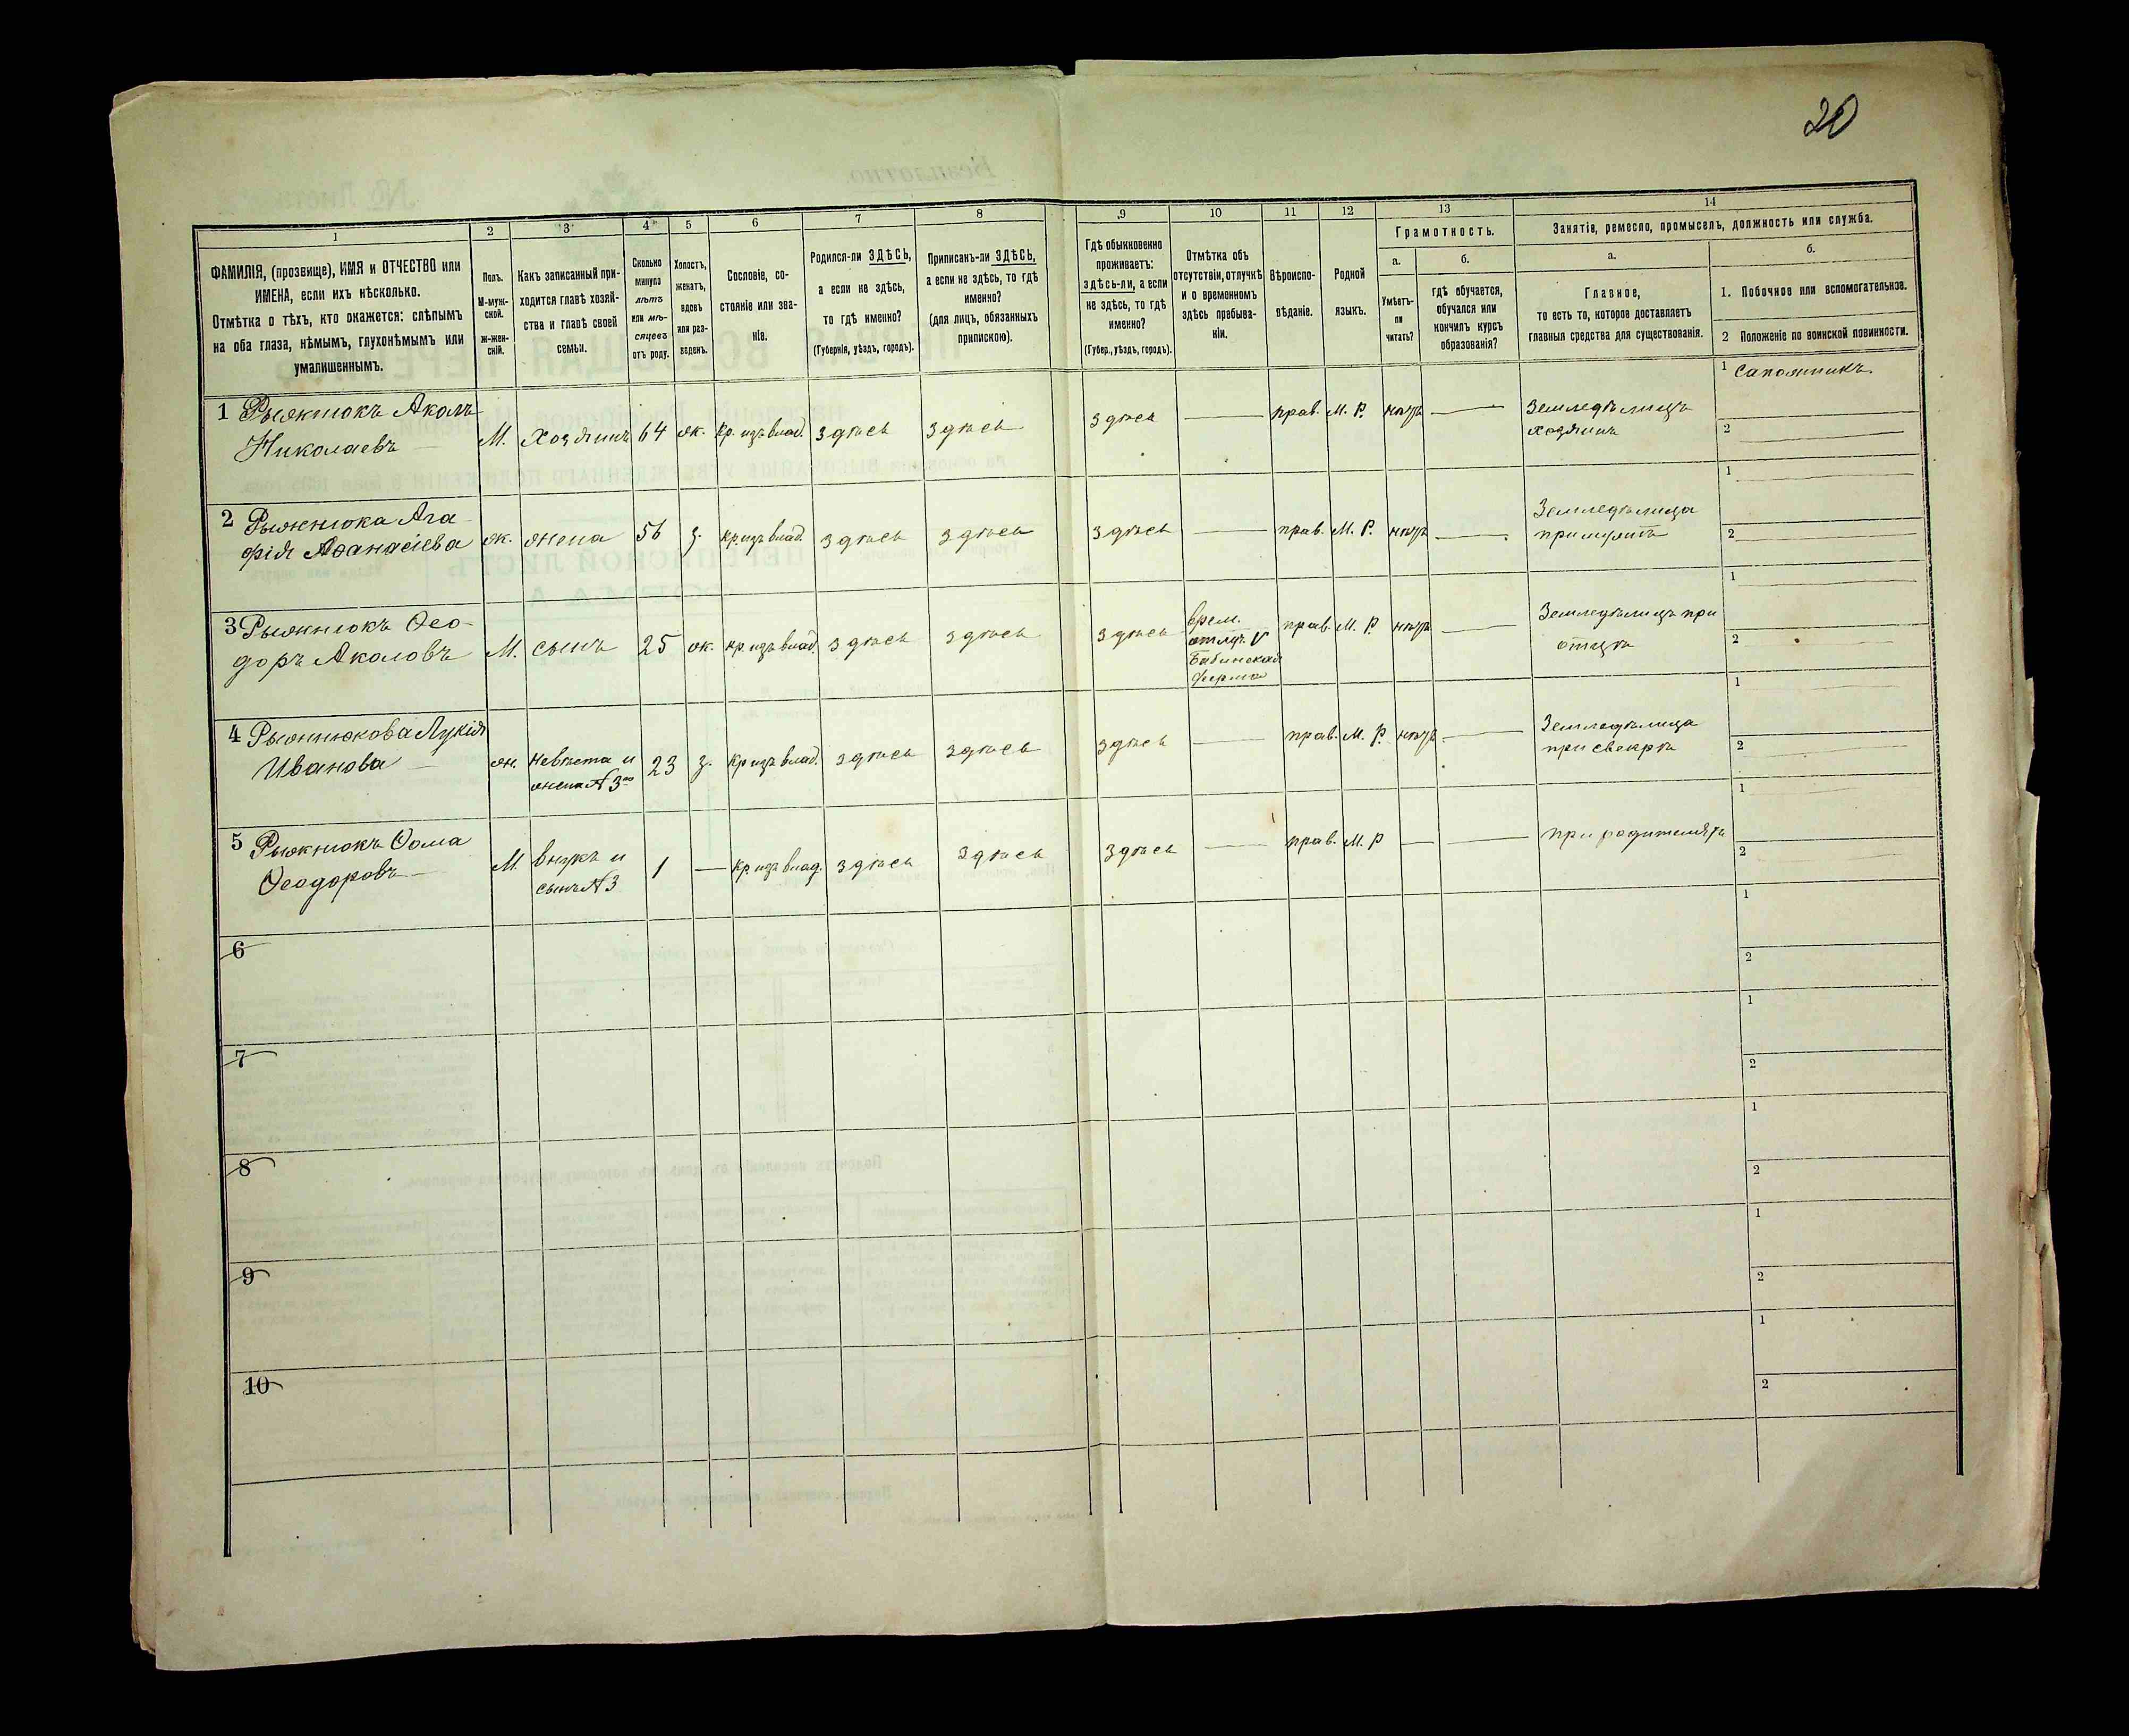 20
1
2
3
4
5
6
7
8
9
10
11
12
13
14
ФАМИЛІЯ, (прозвище), ИМЯ и ОТЧЕСТВО или
ИМЕНА, если ихъ нѣсколько.
Отмѣтка о тѣхъ, кто окажется: слѣпымъ
на оба глаза, нѣмымъ, глухонѣмымъ или
умалишеннымъ.
Полъ.
М-муж-
ской.
ж-жен-
скій.
Какъ записанный при-
ходится главѣ хозяй-
ства и главѣ своей
семьи.
Сколько
минуло
лѣтъ
или мѣ-
сяцевъ
отъ роду.
Холостъ,
женатъ,
вдовъ
или раз-
веденъ.
Сословіе, со-
стояніе или зва-
ніе.
Родился-ли ЗДѢСЬ,
а если не здѣсь,
то гдѣ именно?
(Губернія, уѣздъ, городъ).
Приписанъ-ли ЗДѢСЬ,
а если не здѣсь, то гдѣ
именно?
(для лицъ, обязанныхъ
припискою).
Гдѣ обыкновенно
проживаетъ:
здѣсь-ли, а если
не здѣсь, то гдѣ
именно?
(Губер., уѣздъ, городъ).
Отмѣтка объ
отсутствіи, отлучкѣ
и о временномъ
здѣсь пребыва-
ніи.
Вѣроиспо-
вѣданіе.
Родной
языкъ.
Грамотность.
а.
Умѣетъ-
ли
читать?
б.
гдѣ обучается,
обучался или
кончилъ курсъ
образованія?
Занятіе, ремесло, промыселъ, должность или служба.
а.
Главное,
то есть то, которое доставляетъ
главныя средства для существованія.
б.
1. Побочное или вспомогательное.
2 Положеніе по воинской повинности.
1 Рыжнюкъ Акалъ
Николаевъ
М. Хозяинъ 64 ж. кр. изъ влад. здѣсь здѣсь здѣсь — прав. М. Р. нѣтъ — Земледѣлецъ
хозяинъ
1 Сапожникъ.
2
2 Рыжнюка Ага-
фія Афанасіева
ж. жена 56 з. кр. изъ влад. здѣсь здѣсь здѣсь — прав. М. Р. нѣтъ — Земледѣлица
при мужѣ
1
2
3 Рыжнюкъ Ѳео-
доръ Акаловъ
М. сынъ 25 ж. кр. изъ влад. здѣсь здѣсь здѣсь
врем.
Бабинская
ферма
прав. М. Р. нѣтъ — Земледѣлецъ при
отцѣ
1
2
4 Рыжнюкова Лукія
Иванова
ж. невѣста и
жена № 3го
23 з. кр. изъ влад. здѣсь здѣсь здѣсь — прав. М. Р. нѣтъ — Земледѣлица
при свекрѣ
1
2
5 Рыжнюкъ Ѳома
Ѳеодоровъ
М. внукъ и
сынъ № 3
1 — кр. изъ влад. здѣсь здѣсь здѣсь — прав. М. Р — — при родителяхъ
1
2
6
1
2
7
1
2
8
1
2
9
1
2
10
1
2